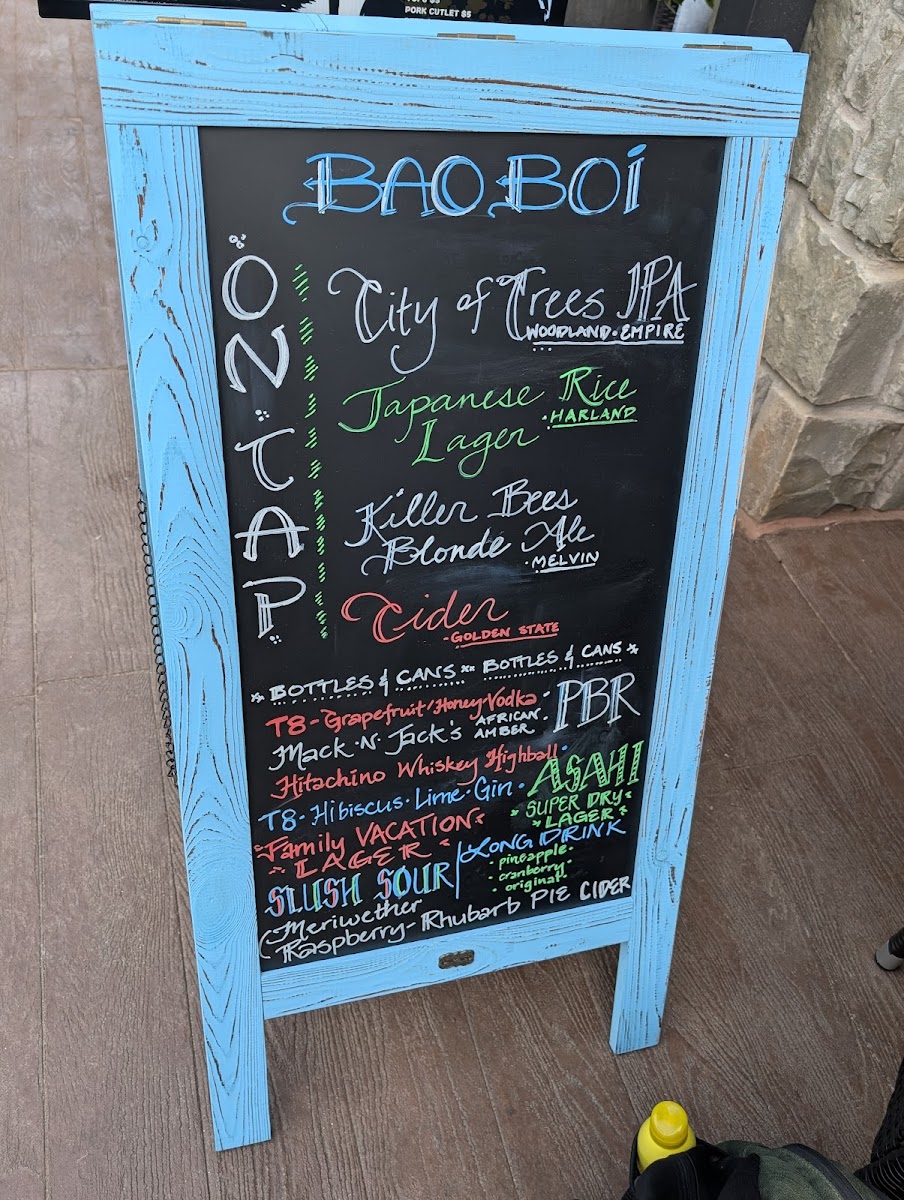 PORK CUTLET $5
BAO BOI
ON TAP
City of Trees IPA
WOODLAND·EMPIRE
Japanese Rice
Lager
·HARLAND
Killer Bees
Blonde Ale
·MELVIN
Cider
-GOLDEN STATE
BOTTLES & CANS BOTTLES & CANS
T8-Grapefruit/Honey Vodka ·
Mack·N·Jack's AFRICAN·
AMBER
PBR
Hitachino Whiskey Highball·
T8·Hibiscus·Lime·Gin·
ASAHI
SUPER DRY
LAGER
Family VACATION
LAGER
SLUSH SOUR
LONG DRINK
·pineapple·
·cranberry
·original·
(Meriwether
Raspberry-Rhubarb PIE CIDER